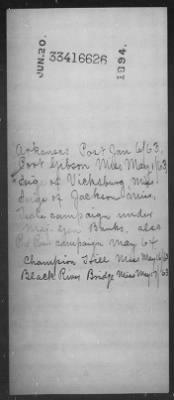 JUN. 20.
33416626
1894.
Arkansas Post Jan 6/63,
Port Gibson Miss May 1/63,
Seig. of Vicksburg, Miss.
Seige of Jackson Miss,
campaign under
Maj. Gen Banks, also
campaign May 64
Champion Hill Miss May 16/63
Black River Bridge Miss May 17/63